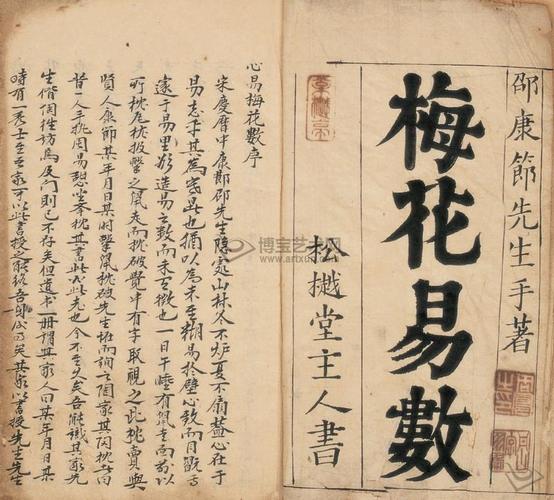 邵康節先生手著
梅花易數
松樾堂主人書
心易梅花數序
宋慶曆中康節邵先生隱處山林冬不炉夏不扇蓋心在于
易忘乎其為寒暑也猶以為未至糊易於壁心致而目翫
邃于易理欲造易之數而未至徵也一日午睡有鼠走而前以
所枕瓦枕投擊之鼠走而枕破覺中有字取視之此枕賣與
賢人康節某年月日某時擊鼠枕破先生怪而詢之陶家其陶枕者曰
昔一人手執周易憩坐举枕其書此必此老也今不至久矣吾能識其家先
生偕陶往訪焉及門則已不存矣但遺書一册謂其家人曰某年月日某
時有一秀士至吾家可以此書授之能終吾身矣其家以書授先生先生
博宝艺术网